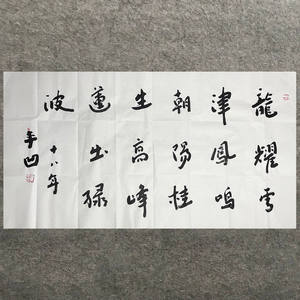 龍耀雲
津鳳鳴
朝陽桂
生高峰
蓮出綠
波
十八年
平凹